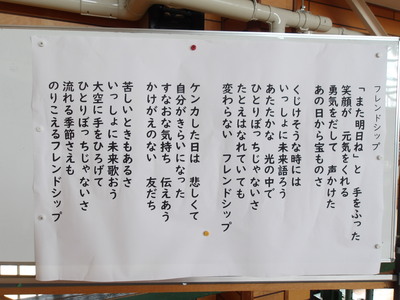 フレンドシップ
「また明日ね」と 手をふった
笑顔が 元気をくれる
勇気をだして 声かけた
あの日から宝ものさ
くじけそうな時には
いっしょに未来語ろう
あたたかな 光の中で
ひとりぼっちじゃないさ
たとえはなれていても
変わらない フレンドシップ
ケンカした日は 悲しくて
自分がきらいになった
すなおな気持ち 伝えあう
かけがえのない 友だち
苦しいときもあるさ
いっしょに未来歌おう
大空に手をひろげて
ひとりぼっちじゃないさ
流れる季節さえも
のりこえるフレンドシップ